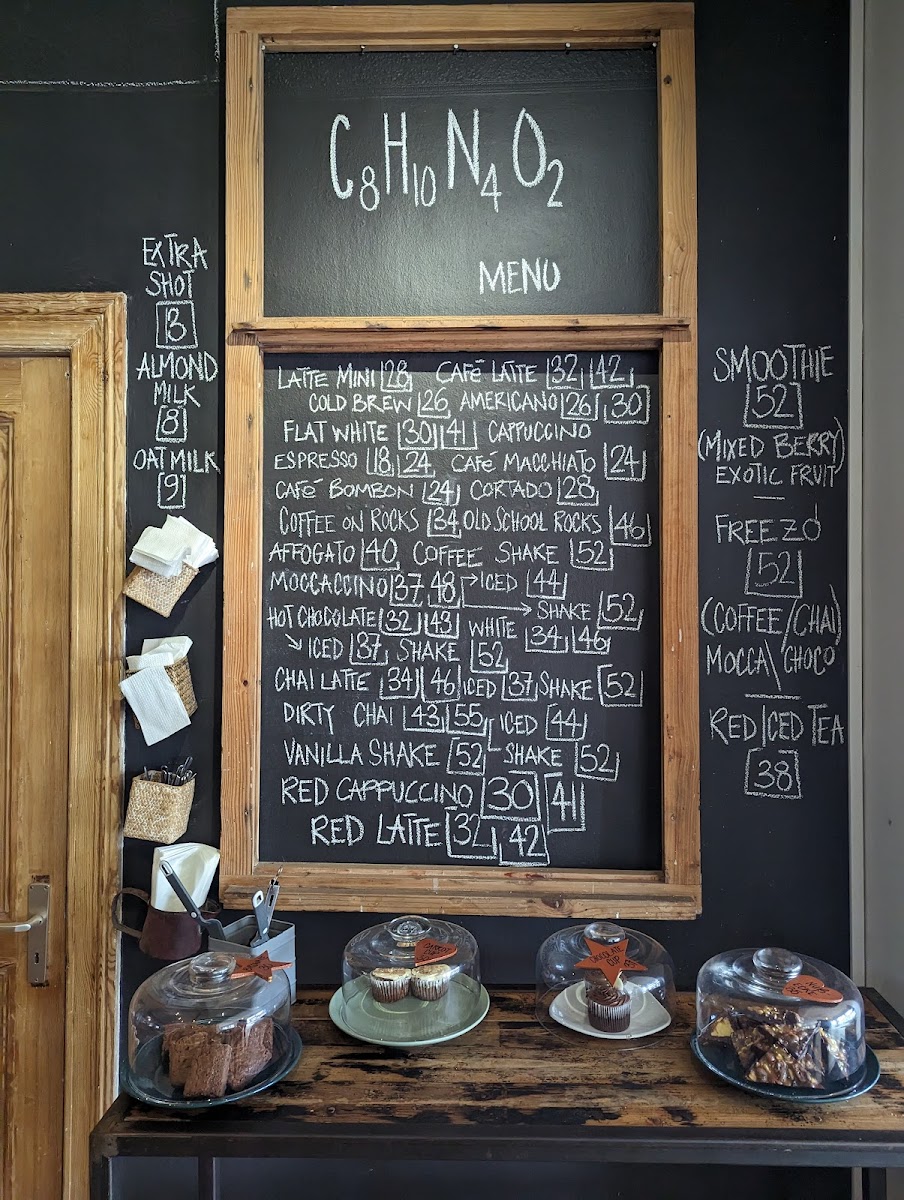 C8H10N4O2
MENU
EXTRA
SHOT
3
ALMOND
MILK
8
OAT MILK
9
LATTE MINI 28 CAFé LATTE 32 42
COLD BREW 26 AMERICANO 26 30
FLAT WHITE 30 41 CAPPUCCINO
ESPRESSO 18 24 CAFé MACCHIATO 24
CAFé BOMBON 24 CORTADO 28
COFFEE ON ROCKS 34 OLD SCHOOL ROCKS 46
AFFOGATO 40 COFFEE SHAKE 52
MOCCACCINO 37 48 → ICED 44
→ SHAKE 52
HOT CHOCOLATE 32 43 WHITE 34 46
↘ ICED 37 SHAKE 52
CHAI LATTE 34 46 ICED 37 SHAKE 52
DIRTY CHAI 43 55 ICED 44
VANILLA SHAKE 52 SHAKE 52
RED CAPPUCCINO 30 41
RED LATTE 32 42
SMOOTHIE
52
(MIXED BERRY)
EXOTIC FRUIT
FREEZO
52
(COFFEE/CHAI)
MOCCA\CHOCO
RED ICED TEA
38
CARROT
CHOCOLATE
CUP